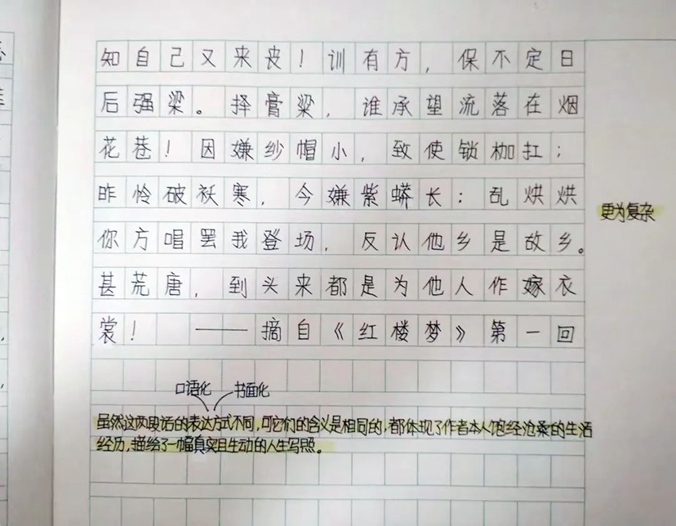 知自己又来丧！训有方，保不定日
后强梁。择膏粱，谁承望流落在烟
花巷！因嫌纱帽小，致使锁枷扛；
昨怜破袄寒，今嫌紫蟒长：乱烘烘
更为复杂
你方唱罢我登场，反认他乡是故乡。
甚荒唐，到头来都是为他人作嫁衣
裳！——摘自《红楼梦》第一回
口语化 书面化
虽然这两更话的表达方式不同，可它们的含义是相同的，都体现了作者本人饱经沧桑的生活
经历，描绘了一幅真实且生动的人生写照。